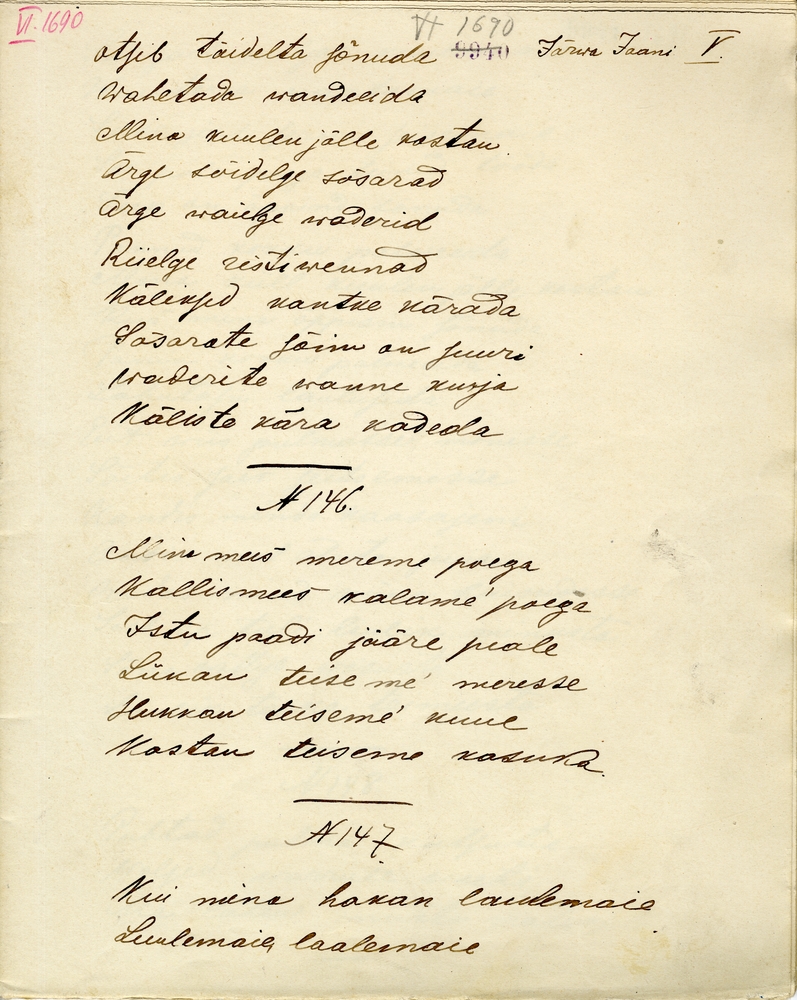 VI. 1690
VI 1690
otsib täidelta sõnuda 9940 Järwa Jaani V.
Wahetada wandeeida
Mina kuulen jälle kostan.
Ärge sõidelge sõsarad
Ärge waielge waderid
Riielge ristiwennad
Käliksed kantke kärada
Sõsarate sõim on suuri
waderite wanne kurja
Käliste kära kadeda
N 146.
Mine mees mereme poega
Kallismees kalame' poega
Istu paadi jääre peale
Lükan teise me' meresse
Hukkan teiseme' kuue
Kastan teiseme kasuka.
N 147.
Kui mina hakan laulemaie
Luulemaie laalemaie